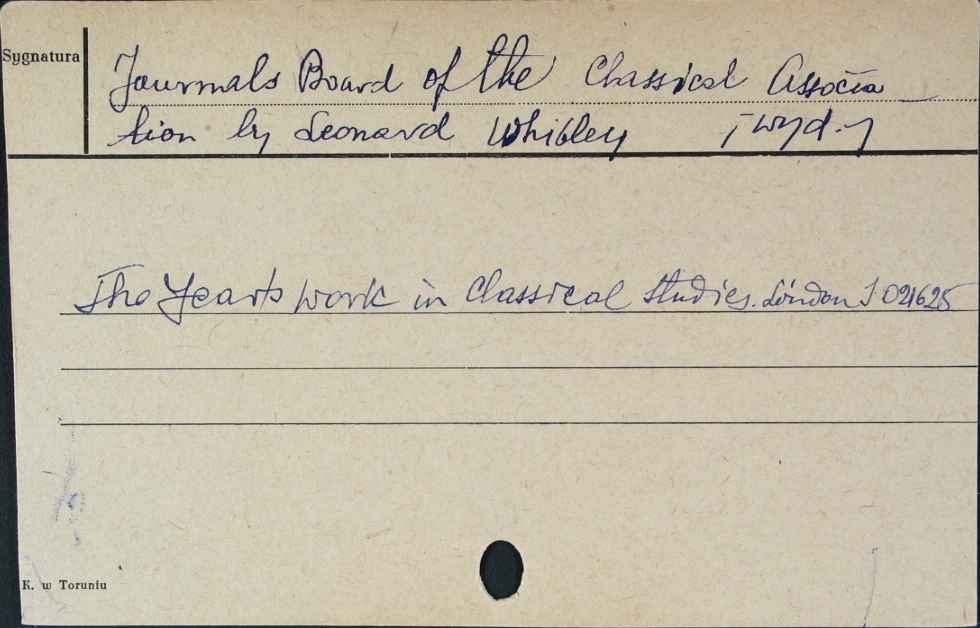 Sygnatura
Journals Board of the Classical Associa
tion by Leonard Whibley , wyd.
The Year's work in Classical Studies. London J 021625
K. w Toruniu